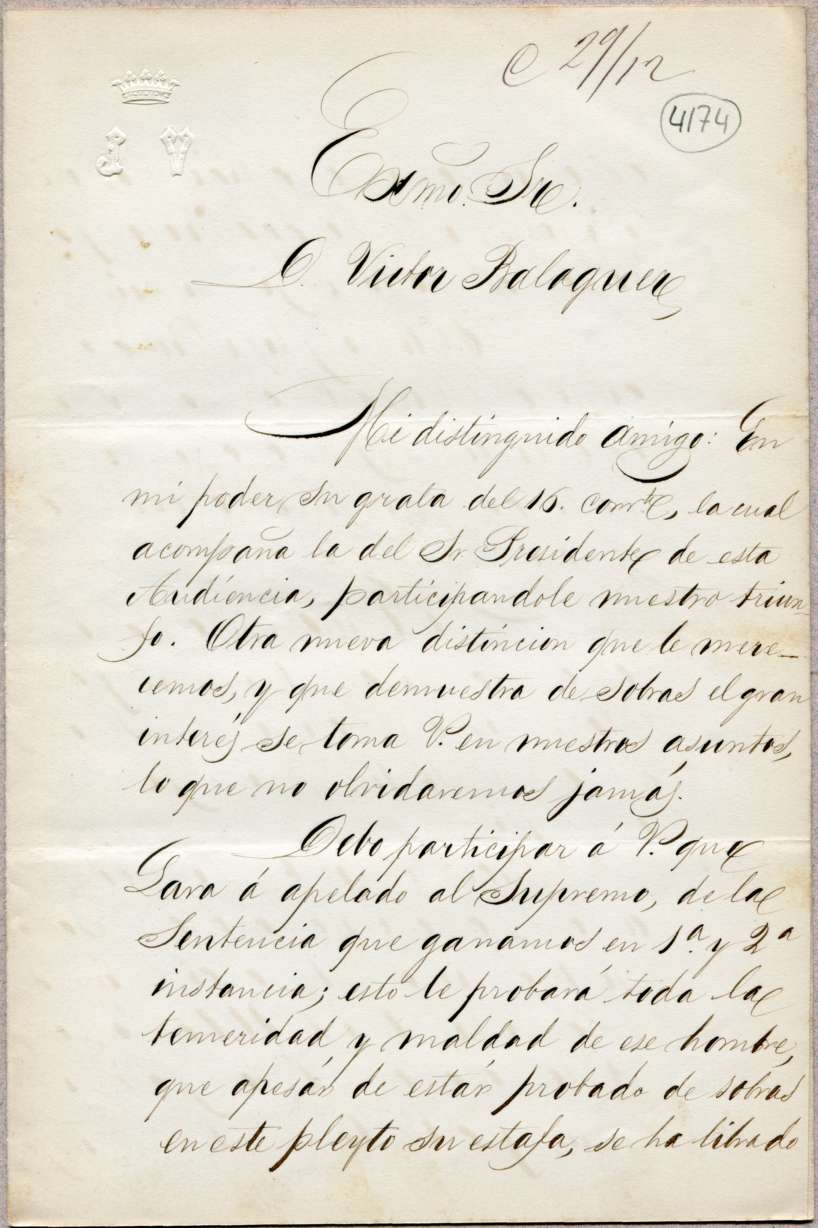 C 29/12
4174
J V
Exmo. Sr.
D. Victor Balaguer
Mi distinguido amigo: En
mi poder su grata del 16. corrte, la cual
acompaña la del Sr. Presidente de esta
Audiencia, participandole nuestro triun-
fo. Otra nueva distincion que le mere-
cemos, y que demuestra de sobras el gran
interés se toma V. en nuestros asuntos,
lo que no olvidaremos jamás.
Debo participar á V. que
Gara á apelado al Supremo, de la
Sentencia que ganamos en 1ª. y 2ª
instancia; esto le probará toda la
temeridad y maldad de ese hombre,
que apesár de estár probado de sobras
en este pleyto su estafa, se ha librado